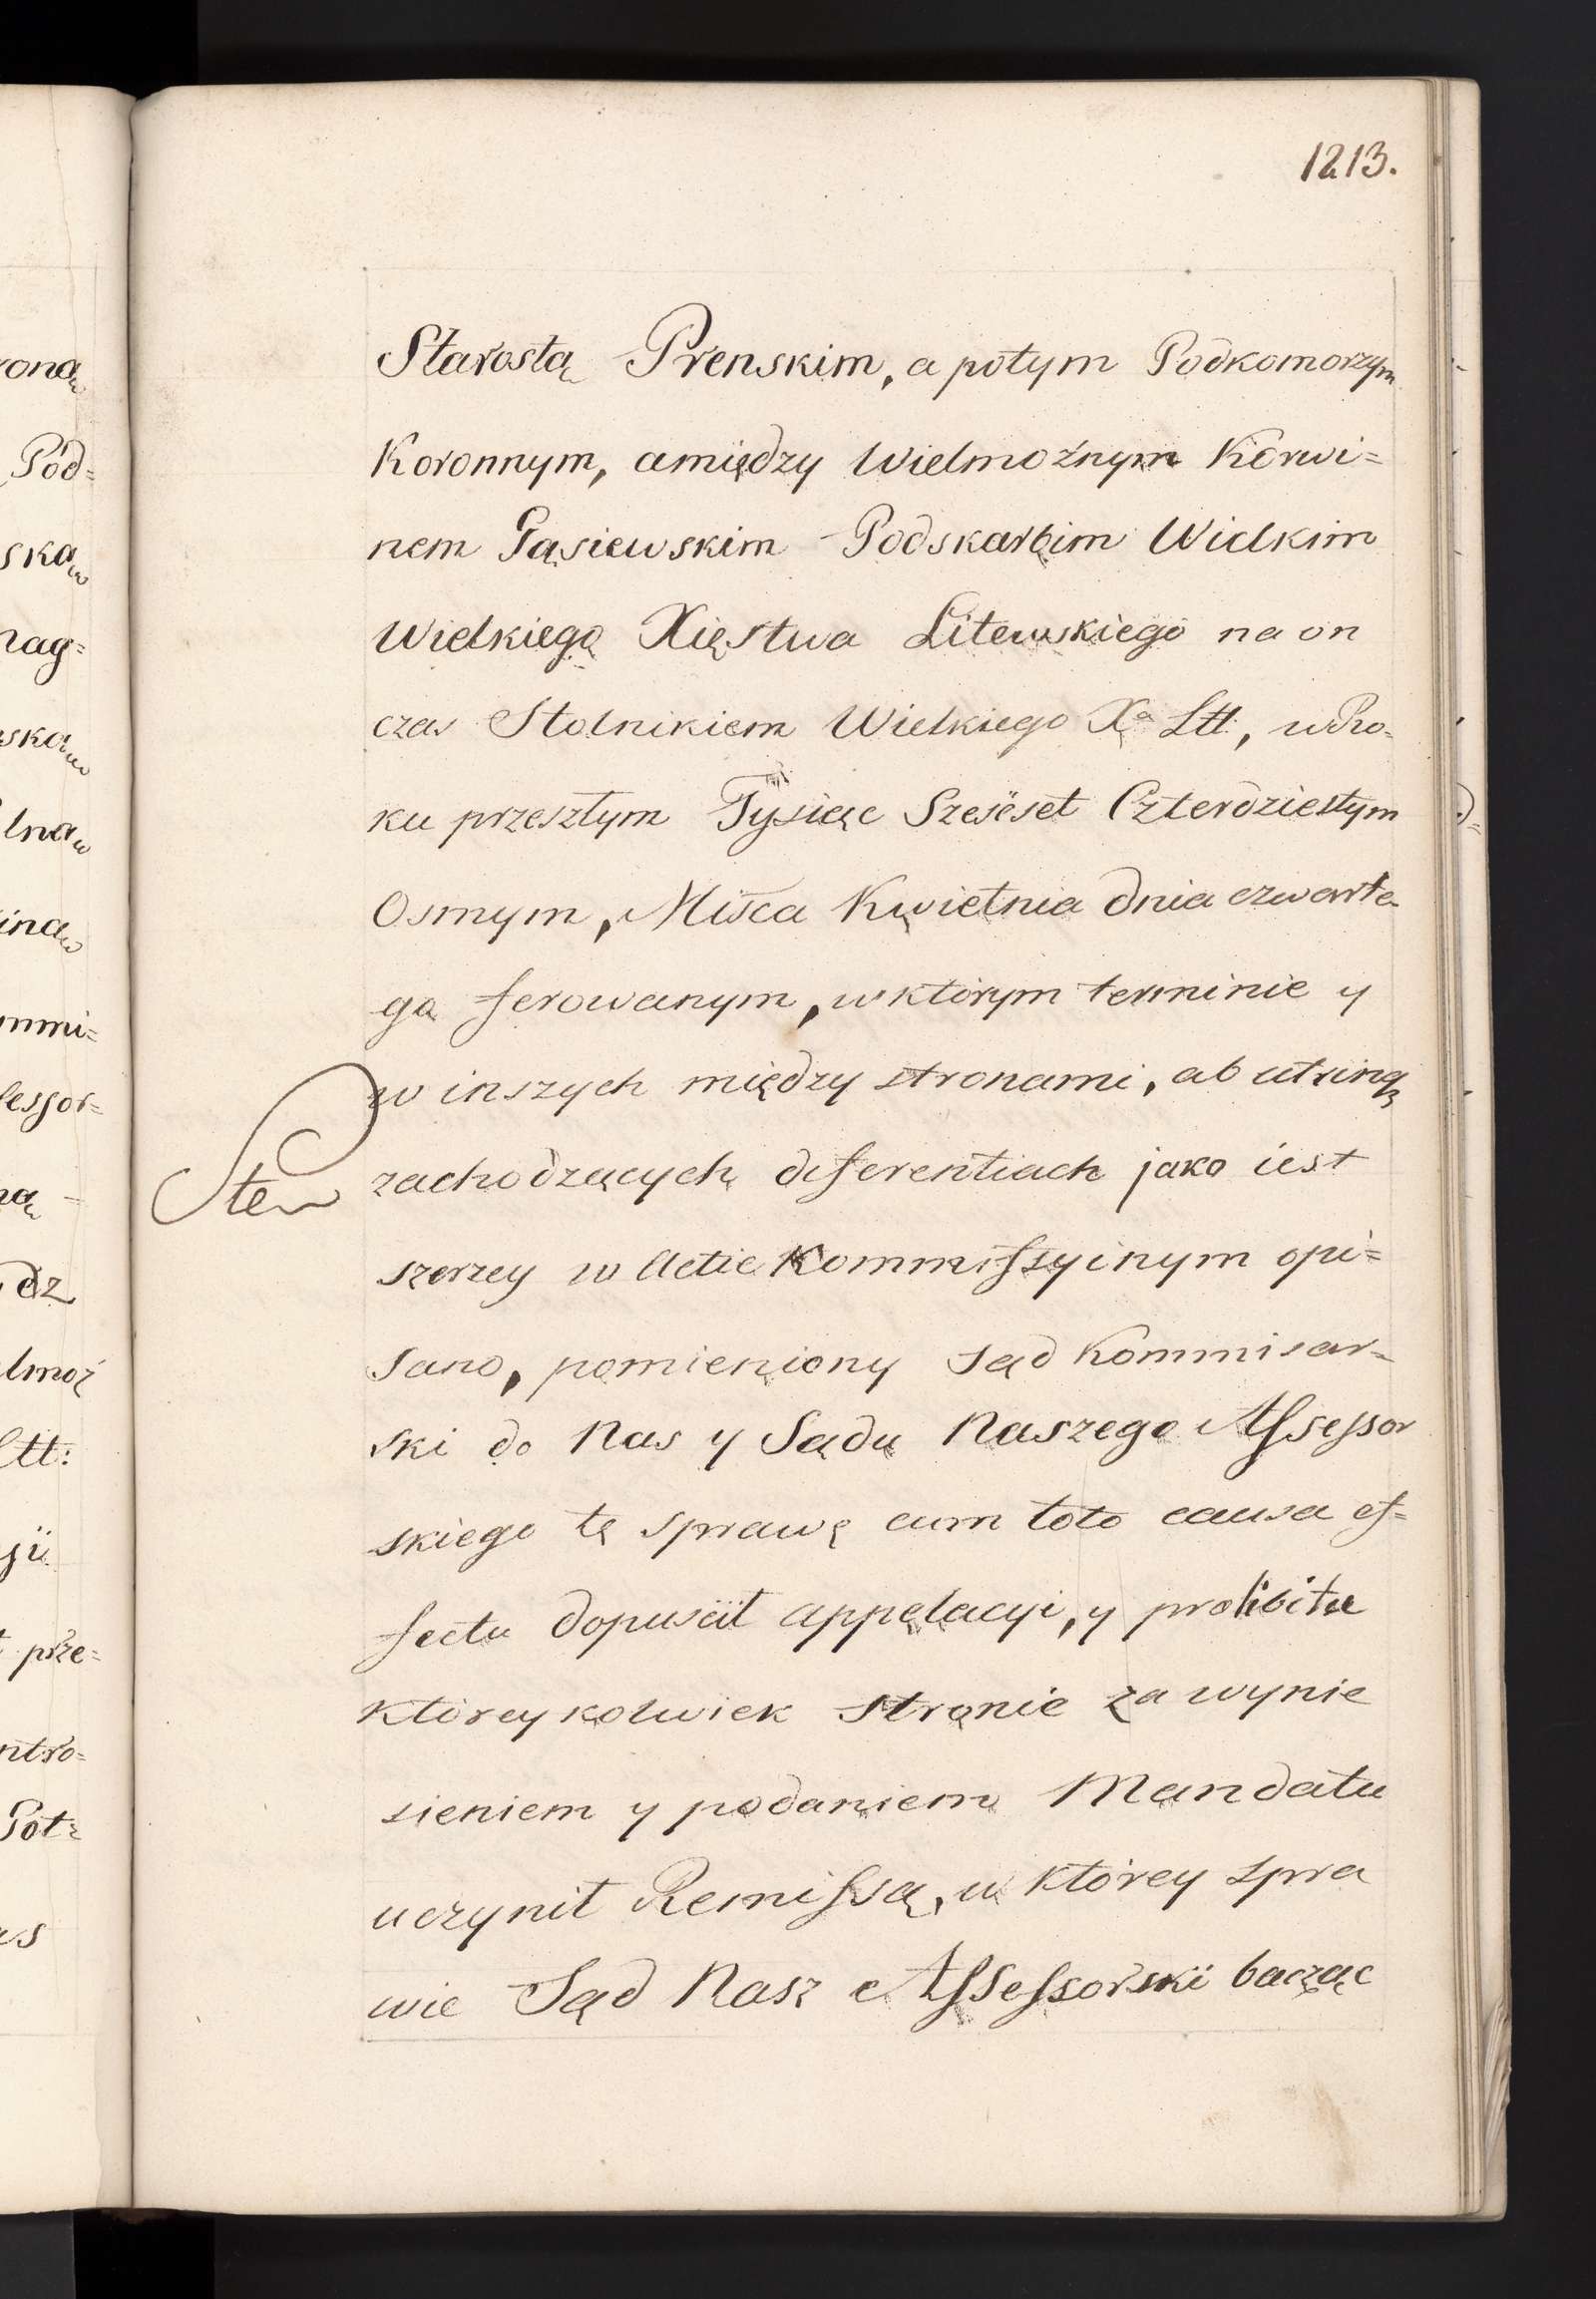 1213.
Starostą Prenskim, a potym Podkomorzym
Koronnym, amiędzy Wielmożnym Korwi=
nem Gąsiewskim Podskarbim Wielkim
Wielkiego Xięstwa Litewskiego na on
czas Stolnikiem Wielkiego Xa Ltt, w Ro-
ku przeszłym Tysiąc Szesċset Czterdziestym
Osmym, Misca Kwietnia dnia czwarte-
go ferowanym, w którym terminie y
w inszych między stronami, ab utrinq
zachodzących diferentiach jako iest
szerzey w Actie Kommissyinym opi=
sano, pomieniony Sąd Kommisar-
ski do Nas y Sądu Naszego Assessor
skiego tę sprawę cum toto causa ef=
fectu dopuscił appelacyi, y prolibitu
którey kolwiek stronie za wynie
sieniem y podaniem Mandatu
uczynił Remissą, w którey spra
wie Sąd Nasz Assessorski bacząc
Sten
roną
Pód=
ską
nag=
ską
lną
iną
mmi=
sessor=
ną =
dz
lmoż
Ltt:
prze=
ntro=
Pot=